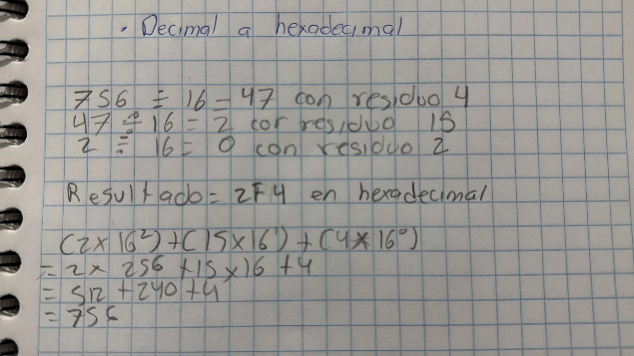 · Decimal a hexadecimal
756 ÷ 16 = 47 con residuo 4
47 ÷ 16 = 2 con residuo 15
2 ÷ 16 = 0 con residuo 2
Resultado = 2F4 en hexadecimal
(2 x 16²) + (15 x 16¹) + (4 x 16⁰)
= 2 x 256 + 15 x 16 + 4
= 512 + 240 + 4
= 756